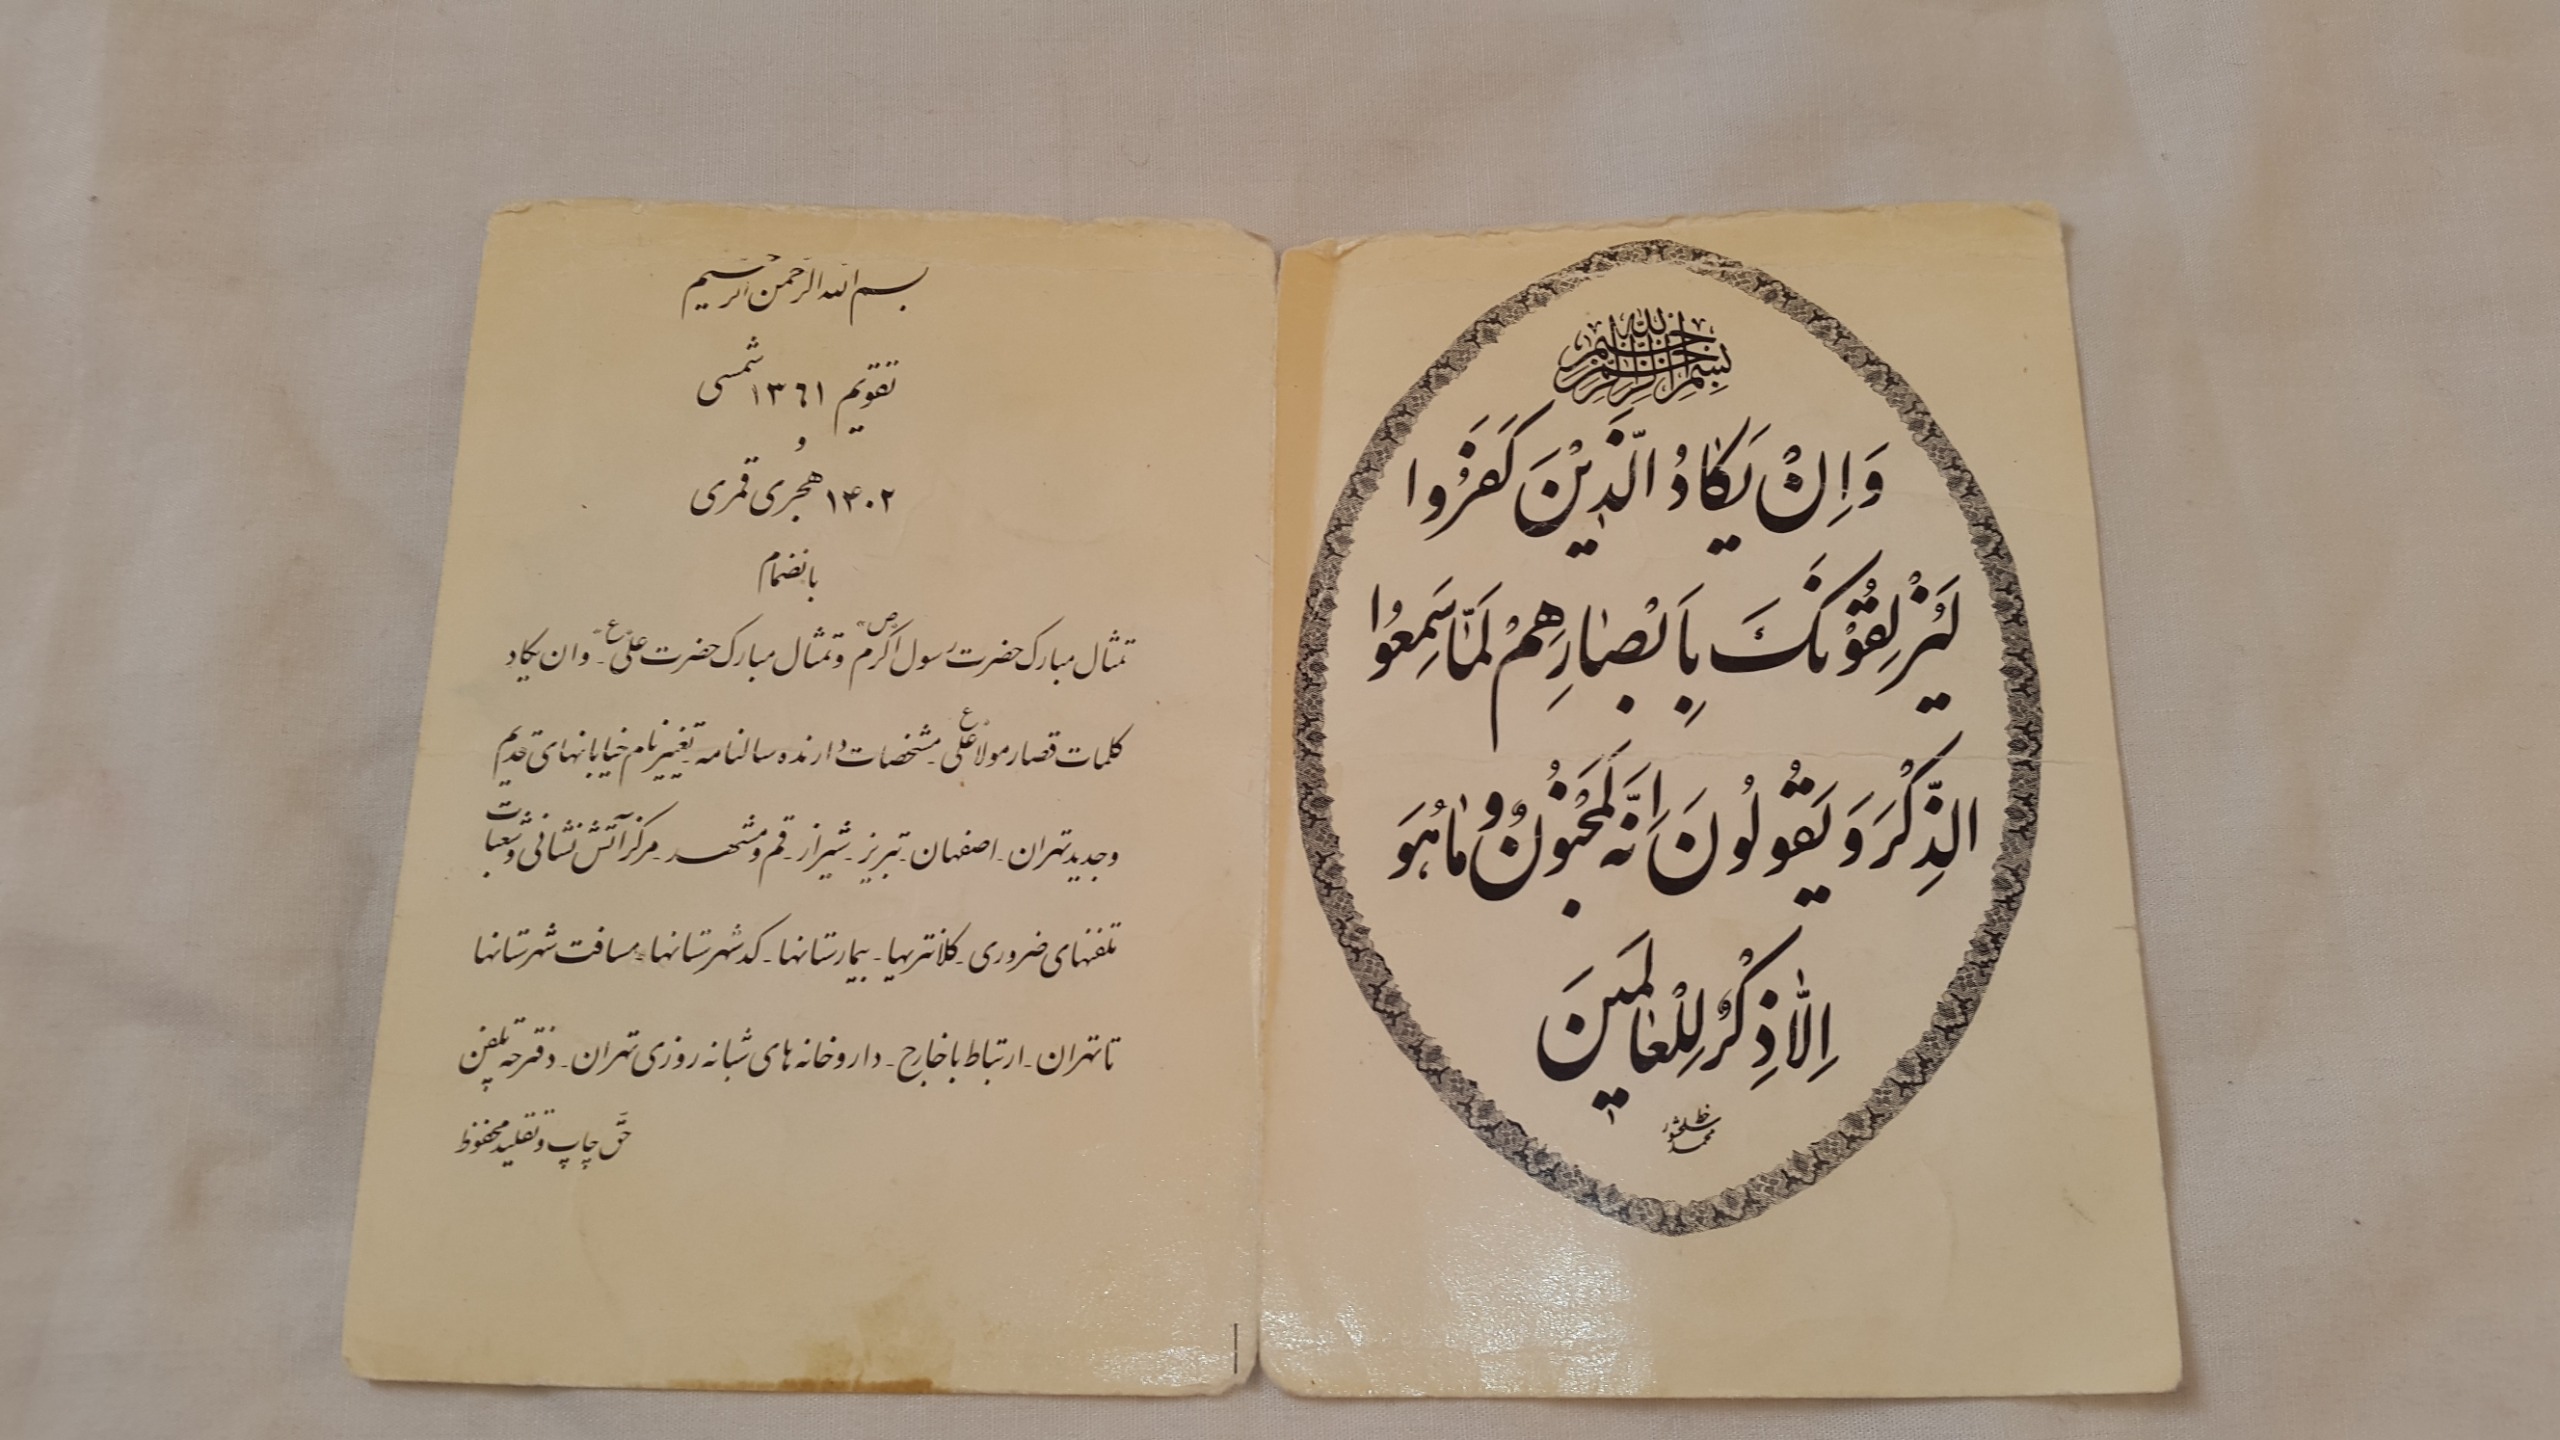 بِسْمِ اللهِ الرَّحْمنِ الرَّحيمِ
وَاِنْ يَكٰادُ الَّذِيْنَ كَفَرُوا
لَيُزْلِقُوْنَكَ بِاَبْصٰارِهِمْ لَمّٰا سَمِعُوا
الذِّكْرَ وَ يَقُولُونَ اِنَّهُ لَمَجْنُونٌ وَ مٰا هُوَ
اِلّٰا ذِكْرٌ لِلْعٰالَمينَ
خط
محمد سلحشور
بسم الله الرحمن الرحیم
تقویم ۱۳٦۱ شمسی
و
۱۴۰۲ هجری قمری
بانضمام
تمثال مبارک حضرت رسول اکرم «ص» و تمثال مبارک حضرت علی «ع» ـ وان یکاد
کلمات قصار مولا علی «ع» ـ مشخصات دارنده سالنامه ـ تغییر نام خیابانهای قدیم
و جدید تهران ـ اصفهان ـ تبریز ـ شیراز ـ قم و مشهد ـ مرکز آتش نشانی و شعبات
تلفنهای ضروری ـ کلانتریها ـ بیمارستانها ـ کد شهرستانها ـ مسافت شهرستانها
تا تهران ـ ارتباط با خارج ـ داروخانه های شبانه روزی تهران ـ دفترچه تلفن
حق چاپ و تقلید محفوظ